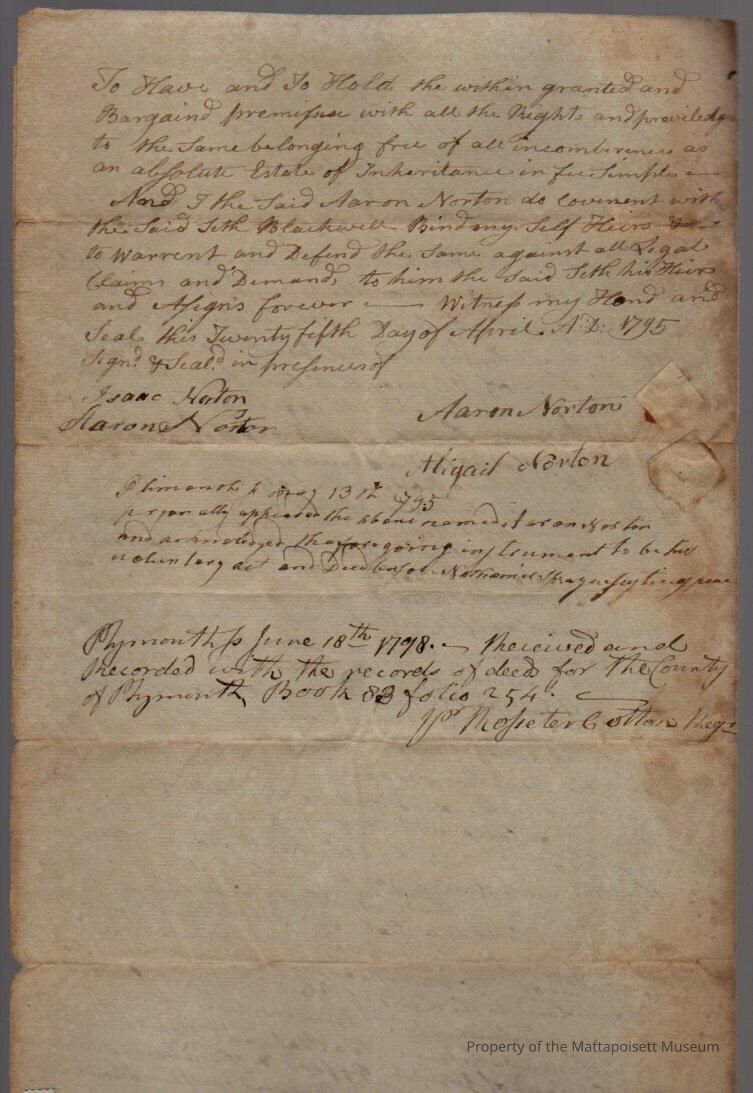 To Have and To Hold the within granted and
Bargaind premises with all the Rights and priviledges
to the Same belonging free of all incomberence as
an absolute Estate of Inheritance in fee Simple
And I the Said Aaron Norton do Covenent with
the Said Seth Blackwell Bind my Self Heirs &c
to Warrent and Defend the Same against all Legal
Claims and Demands to him the Said Seth his Heirs
and Asigns forever Witness my Hand and
Seal this Twenty fifth Day of April A D: 1795
Signd. & Seald. in presence of
Isaac Norton
Aaron Norton
Aaron Norton
Abigail Norton
Plimouth ss 13th 1795
personally appeared the above named Aaron Norton
and acknoledged the foregoing instrument to be his
voluntary act and Deed before Nathaniel Sprague justice peace
Plymouth ss June 18th 1798. Received and
Recorded with the records of deeds for the County
of Plymouth Book 83 folio 254.
pr Rosseter Cotton Regr
Property of the Mattapoisett Museum